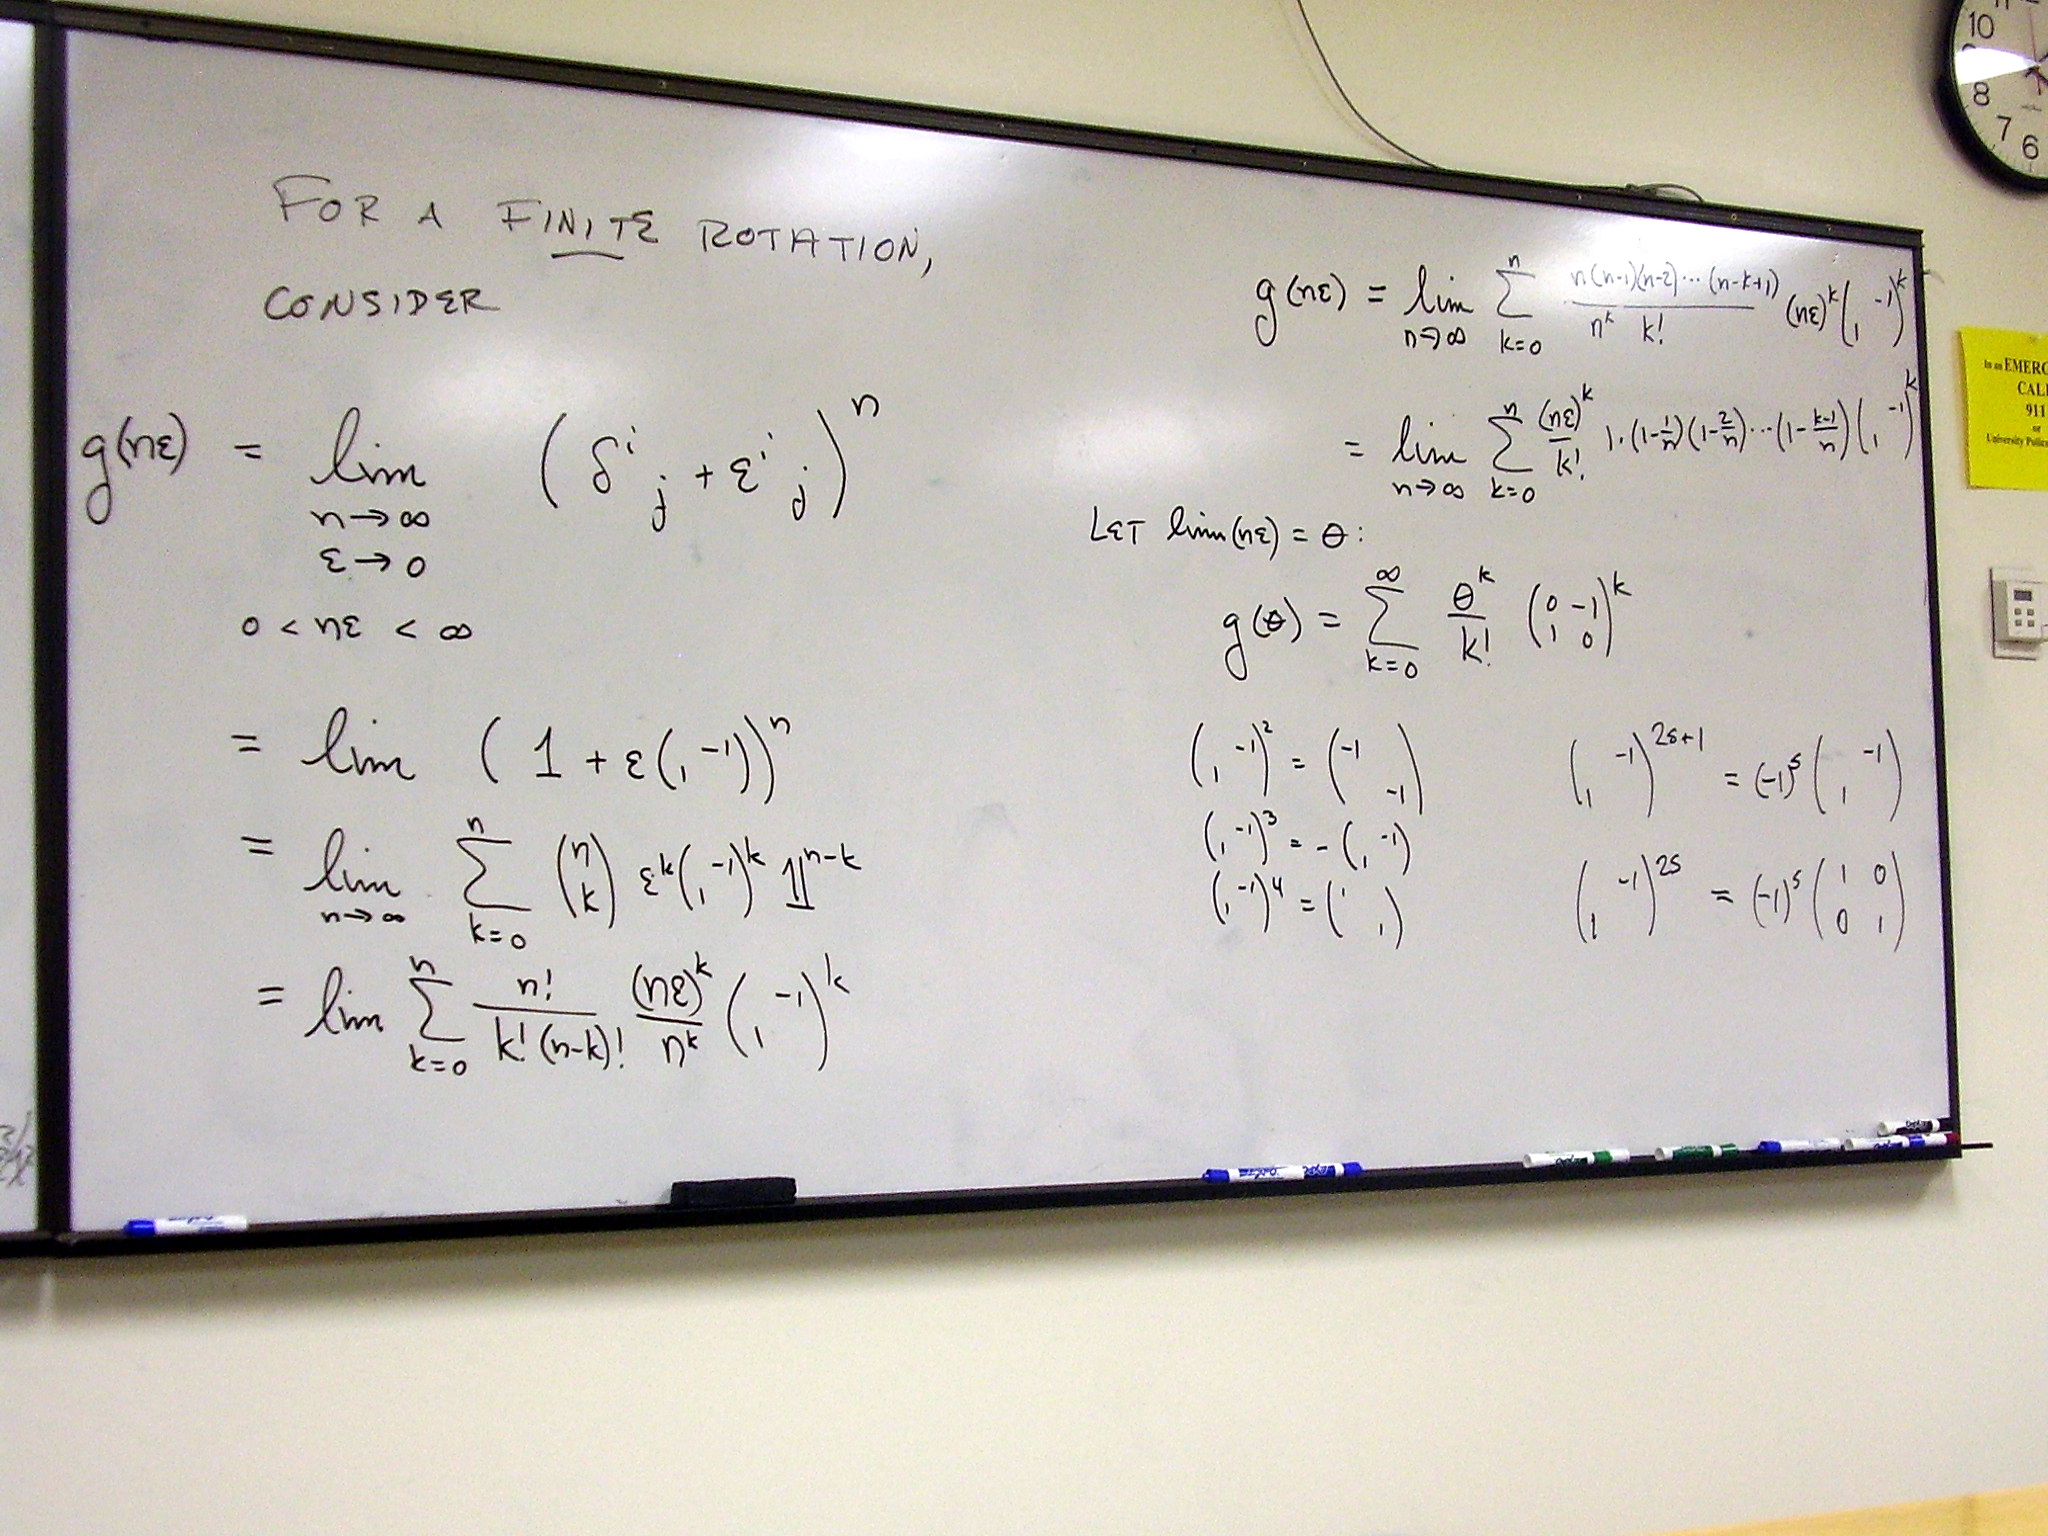 FOR A FINITE ROTATION,
CONSIDER
g(nε) = lim (δ^i_j + ε^i_j)^n
n→∞
ε→0
0 < nε < ∞
= lim (1 + ε(1 -1))^n
= lim n→∞ Σ_{k=0}^n (n k) ε^k (1 -1)^k 𝟙^{n-k}
= lim Σ_{k=0}^n n!/(k!(n-k)!) (nε)^k/n^k (1 -1)^k
g(nε) = lim n→∞ Σ_{k=0}^n n(n-1)(n-2)···(n-k+1)/(n^k k!) (nε)^k (1 -1)^k
= lim n→∞ Σ_{k=0}^n (nε)^k/k! 1·(1-1/n)(1-2/n)···(1-(k-1)/n) (1 -1)^k
LET lim(nε) = θ:
g(θ) = Σ_{k=0}^∞ θ^k/k! (0 -1 1 0)^k
(1 -1)^2 = (-1 -1)
(1 -1)^3 = -(1 -1)
(1 -1)^4 = (1 1)
(1 -1)^{2s+1} = (-1)^s (1 -1)
(1 -1)^{2s} = (-1)^s (1 0 0 1)
10
8
7
6
CALL
911
or
University Police